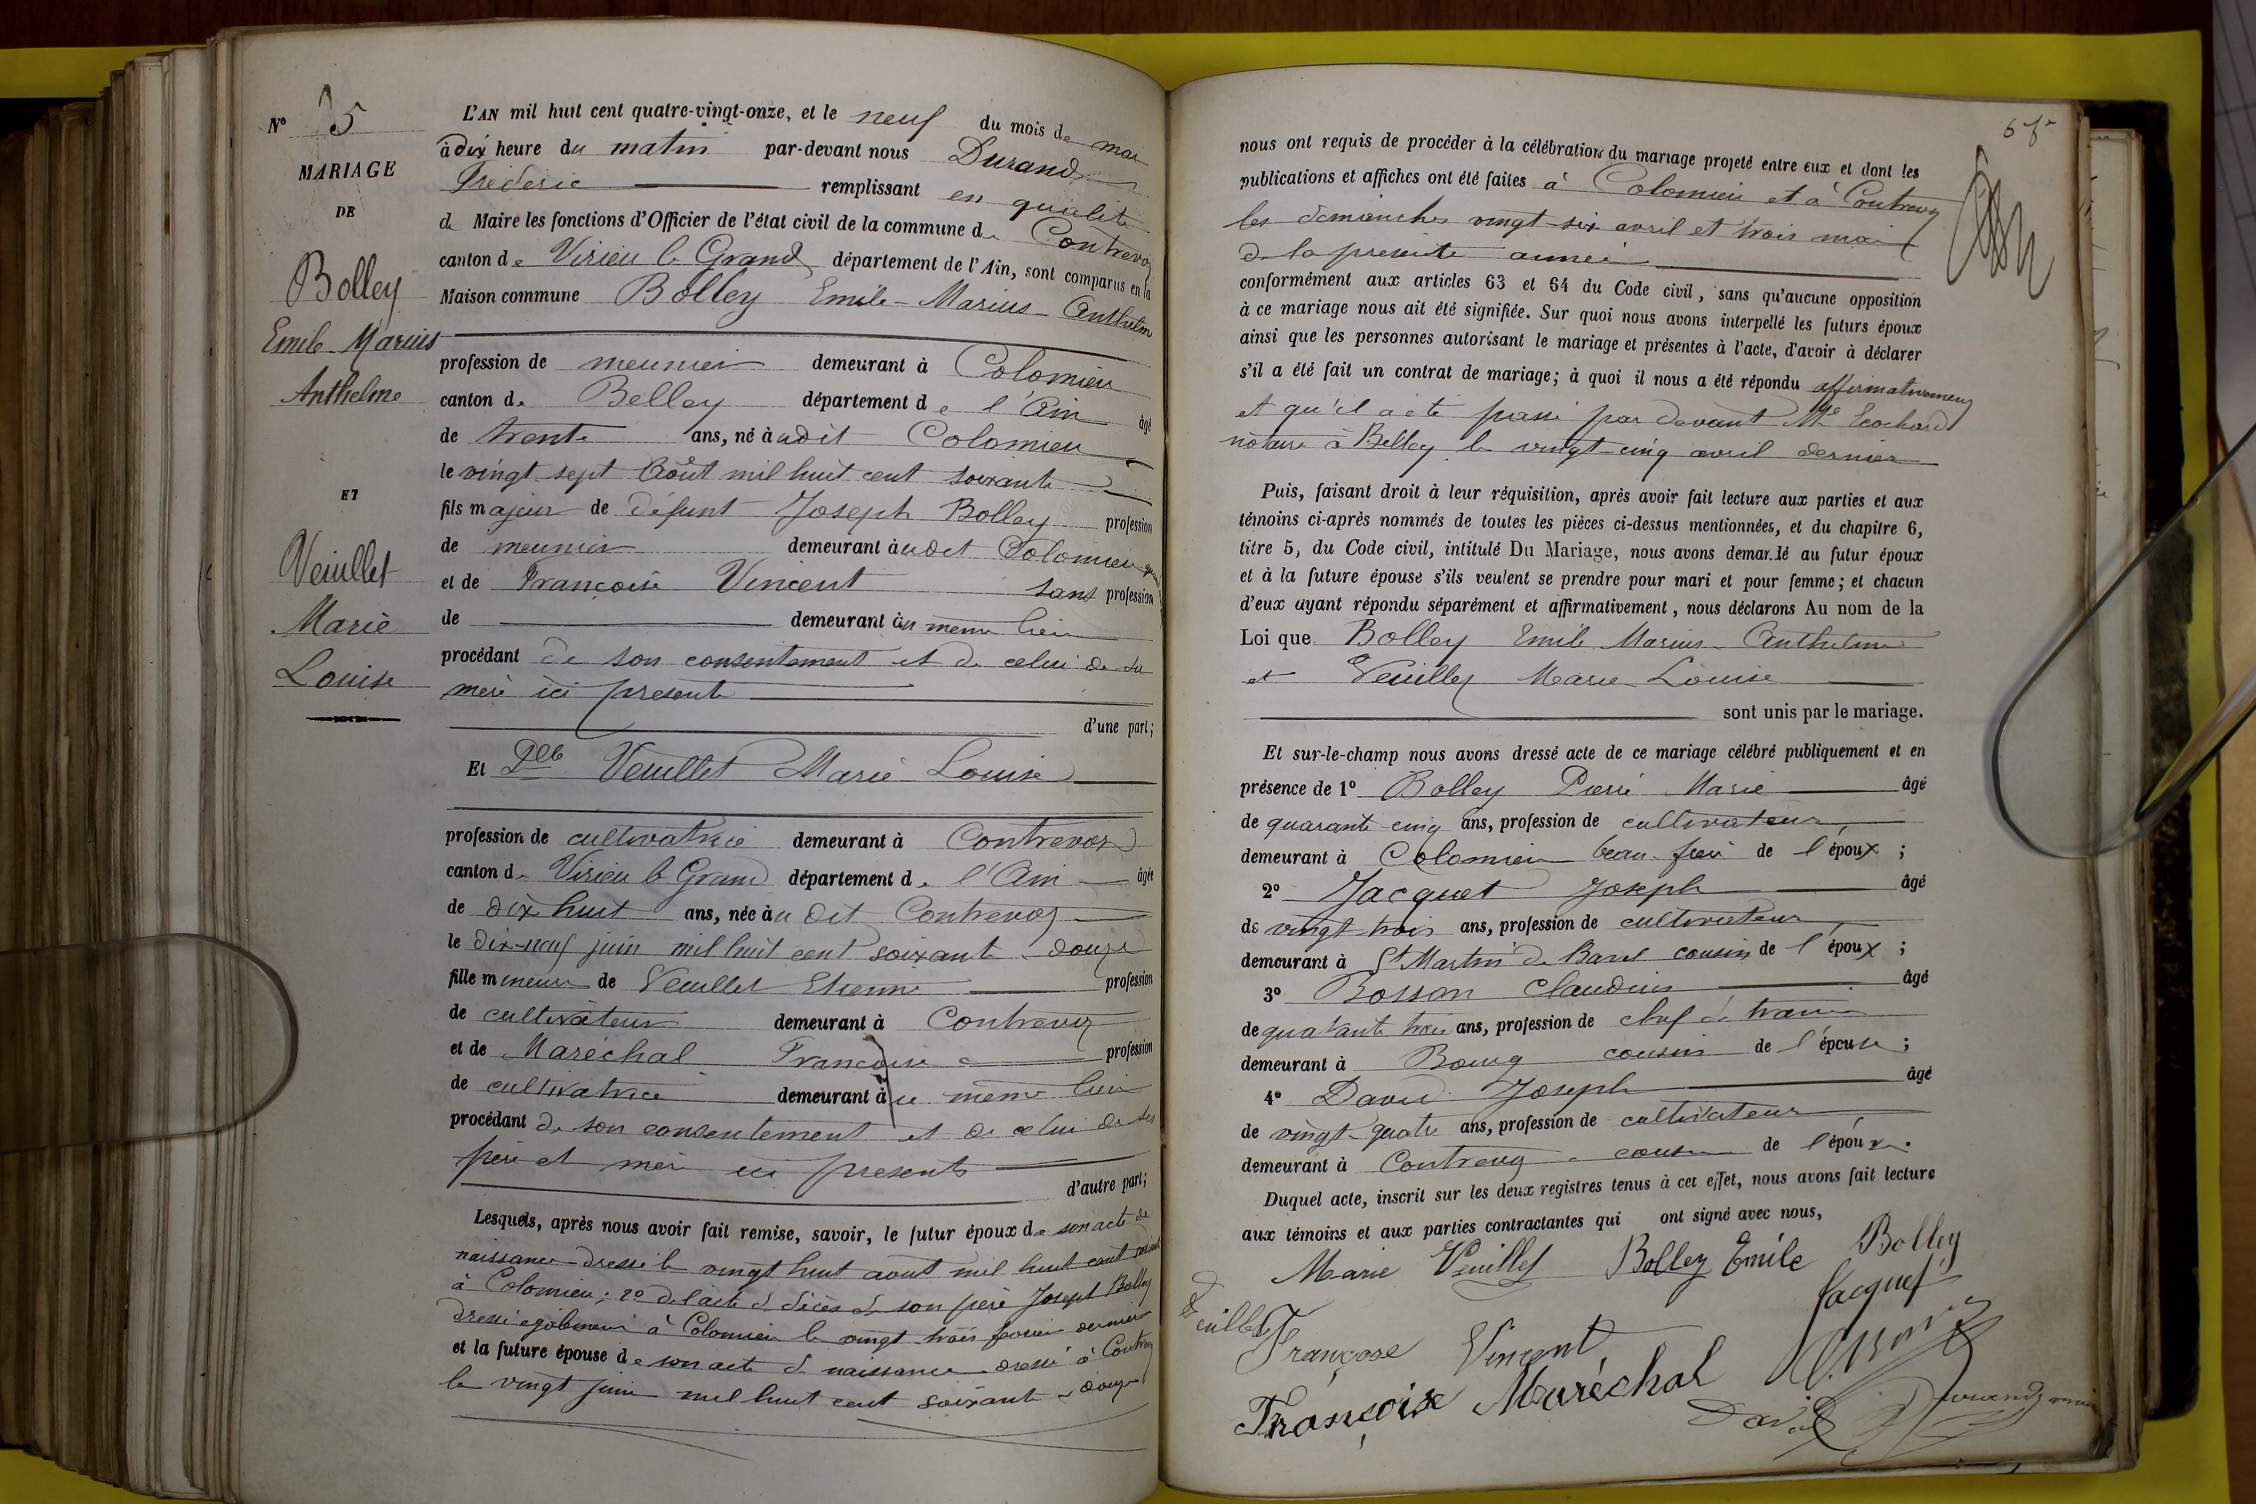 N° 5
MARIAGE
DE
Bolley
Emile Marius
Anthelme
ET
Veuillet
Marie
Louise
L'AN mil huit cent quatre-vingt-onze, et le neuf du mois de mai
à dix heure du matin par-devant nous Durand
Frédéric remplissant en qualité
de Maire les fonctions d'Officier de l'état civil de la commune de Contrevoz
canton de Virieu le Grand département de l'Ain, sont comparus en la
Maison commune Bolley Emile-Marius-Anthelm
profession de meunier demeurant à Colomieu
canton de Belley département de l'Ain âgé
de trente ans, né audit Colomieu
le vingt sept Août mil huit cent soixante
fils majeur de défunt Joseph Bolley profession
de meunier demeurant audit Colomieu
et de Françoise Vincent sans profession
de demeurant au même lieu
procédant de son consentement et de celui de sa
mère ici présente
d'une part;
Et Dlle Veuillet Marie Louise
profession de cultivatrice demeurant à Contrevoz
canton de Virieu le Grand département de l'Ain âgée
de dix huit ans, née audit Contrevoz
le dix-neuf juin mil huit cent soixante-douze
fille mineure de Veuillet Etienne profession
de cultivateur demeurant à Contrevoz
et de Maréchal Françoise profession
de cultivatrice demeurant au même lieu
procédant de son consentement et de celui de ses
père et mère ici présents
d'autre part;
Lesquels, après nous avoir fait remise, savoir, le futur époux de son acte de
naissance dressé le vingt huit aout mil huit cent soixante
à Colomieu; 2° de l'acte de décès de son père Joseph Bolley
dressé également à Colomieu le vingt trois février dernier
et la future épouse de son acte de naissance dressé à Contrevoz
le vingt juin mil huit cent soixante-douze
nous ont requis de procéder à la célébration du mariage projeté entre eux et dont les
publications et affiches ont été faites à Colomieu et à Contrevoz
les dimanches vingt-six avril et trois mai
de la présente année
conformément aux articles 63 et 64 du Code civil, sans qu'aucune opposition
à ce mariage nous ait été signifiée. Sur quoi nous avons interpellé les futurs époux
ainsi que les personnes autorisant le mariage et présentes à l'acte, d'avoir à déclarer
s'il a été fait un contrat de mariage; à quoi il nous a été répondu affirmativement
et qu'il a été passé par devant Me Ecochard
notaire à Belley le vingt-cinq avril dernier
Puis, faisant droit à leur réquisition, après avoir fait lecture aux parties et aux
témoins ci-après nommés de toutes les pièces ci-dessus mentionnées, et du chapitre 6,
titre 5, du Code civil, intitulé Du Mariage, nous avons demandé au futur époux
et à la future épouse s'ils veulent se prendre pour mari et pour femme; et chacun
d'eux ayant répondu séparément et affirmativement, nous déclarons Au nom de la
Loi que Bolley Emile Marius-Anthelme
et Veuillet Marie-Louise
sont unis par le mariage.
Et sur-le-champ nous avons dressé acte de ce mariage célébré publiquement et en
présence de 1° Bolley Pierre Marie âgé
de quarante-cinq ans, profession de cultivateur
demeurant à Colomieu beau-frère de l'époux;
2° Jacquet Joseph âgé
de vingt-trois ans, profession de cultivateur
demeurant à St Martin de Bavel cousin de l'époux;
3° Bosson Claudius âgé
de quarante trois ans, profession de chef de train
demeurant à Bourg cousin de l'épouse;
4° David Joseph âgé
de vingt-quatre ans, profession de cultivateur
demeurant à Contrevoz cousin de l'épouse.
Duquel acte, inscrit sur les deux registres tenus à cet effet, nous avons fait lecture
aux témoins et aux parties contractantes qui ont signé avec nous,
Marie Veuillet Bolley Emile Bolley
Jacquet
Veuillet
Françose Vincent
Françoise Maréchal
David Durand maire